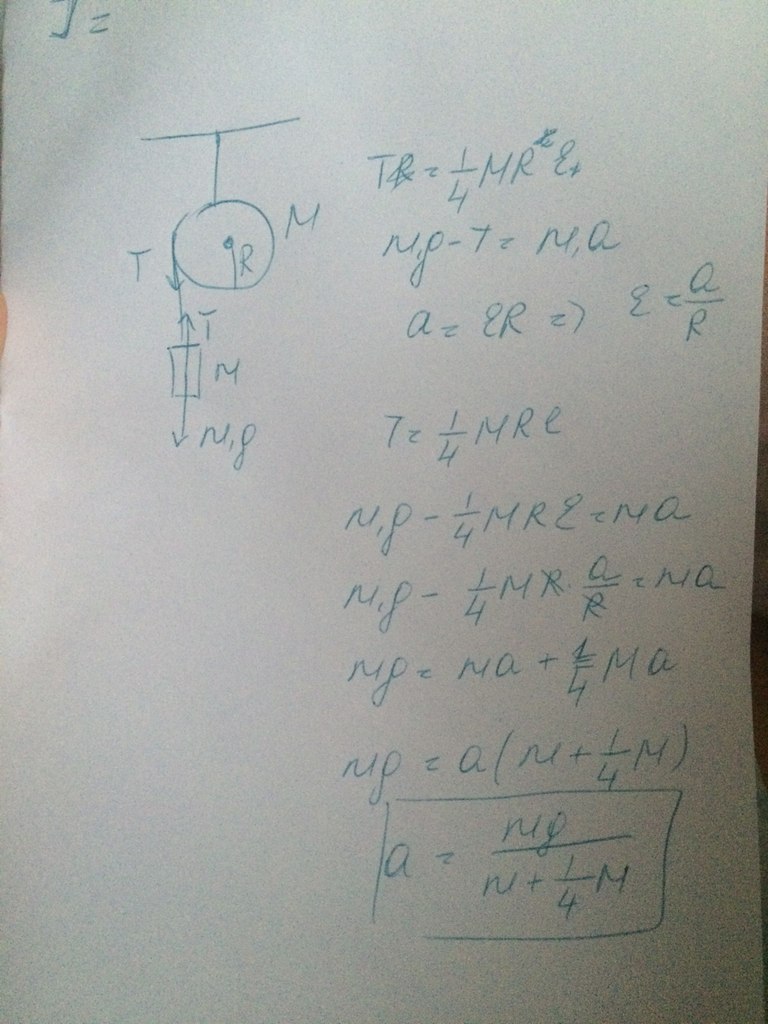 J =
TR = 1/4 MR² ε
M
T
R
T
m
mg
mg - T = ma
a = εR => ε = a/R
T = 1/4 MRε
mg - 1/4 MRε = ma
mg - 1/4 MR · a/R = ma
mg = ma + 1/4 Ma
mg = a(m + 1/4 M)
a = mg / (m + 1/4 M)